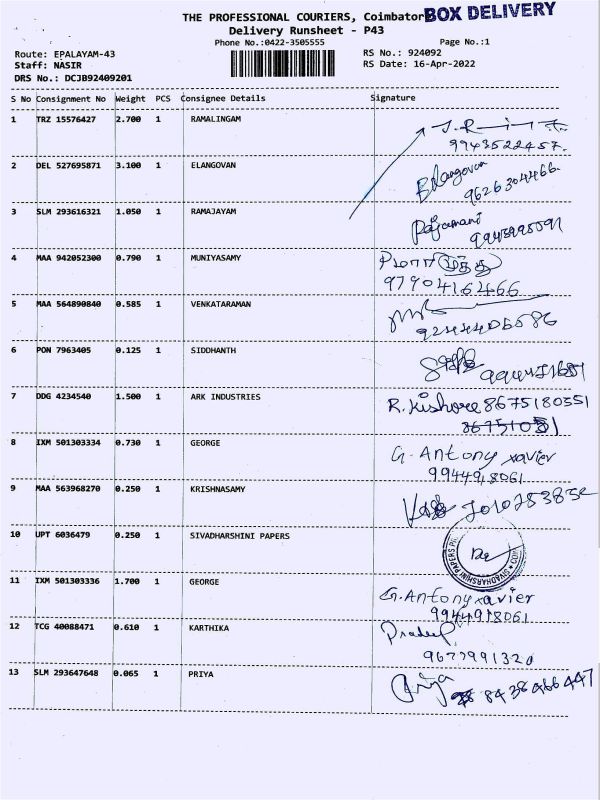 THE PROFESSIONAL COURIERS, Coimbatore
BOX DELIVERY
Delivery Runsheet - P43
Phone No.:0422-3505555
Page No.:1
Route: EPALAYAM-43
RS No.: 924092
Staff: NASIR
RS Date: 16-Apr-2022
DRS No.: DCJB92409201
S No Consignment No Weight PCS Consignee Details Signature
1 TRZ 15576427 2.700 1 RAMALINGAM
9943522457.
2 DEL 527695871 3.100 1 ELANGOVAN Elangovan
9626304466.
3 SLM 293616321 1.050 1 RAMAJAYAM Rajamani
4 MAA 942052300 0.790 1 MUNIYASAMY
9790416466
5 MAA 564890840 0.585 1 VENKATARAMAN
9244406586
6 PON 7963405 0.125 1 SIDDHANTH
7 DDG 4234540 1.500 1 ARK INDUSTRIES R. Kishore 8675180551
8 IXM 501303334 0.730 1 GEORGE G. Antony xavier
9944918061
9 MAA 563968270 0.250 1 KRISHNASAMY
10 UPT 6036479 0.250 1 SIVADHARSHINI PAPERS
SIVADHARSHINI PAPERS
11 IXM 501303336 1.700 1 GEORGE G. Antony xavier
9944918061
12 TCG 40088471 0.610 1 KARTHIKA Pradeep
9677991320
13 SLM 293647648 0.065 1 PRIYA Priya 8438466447